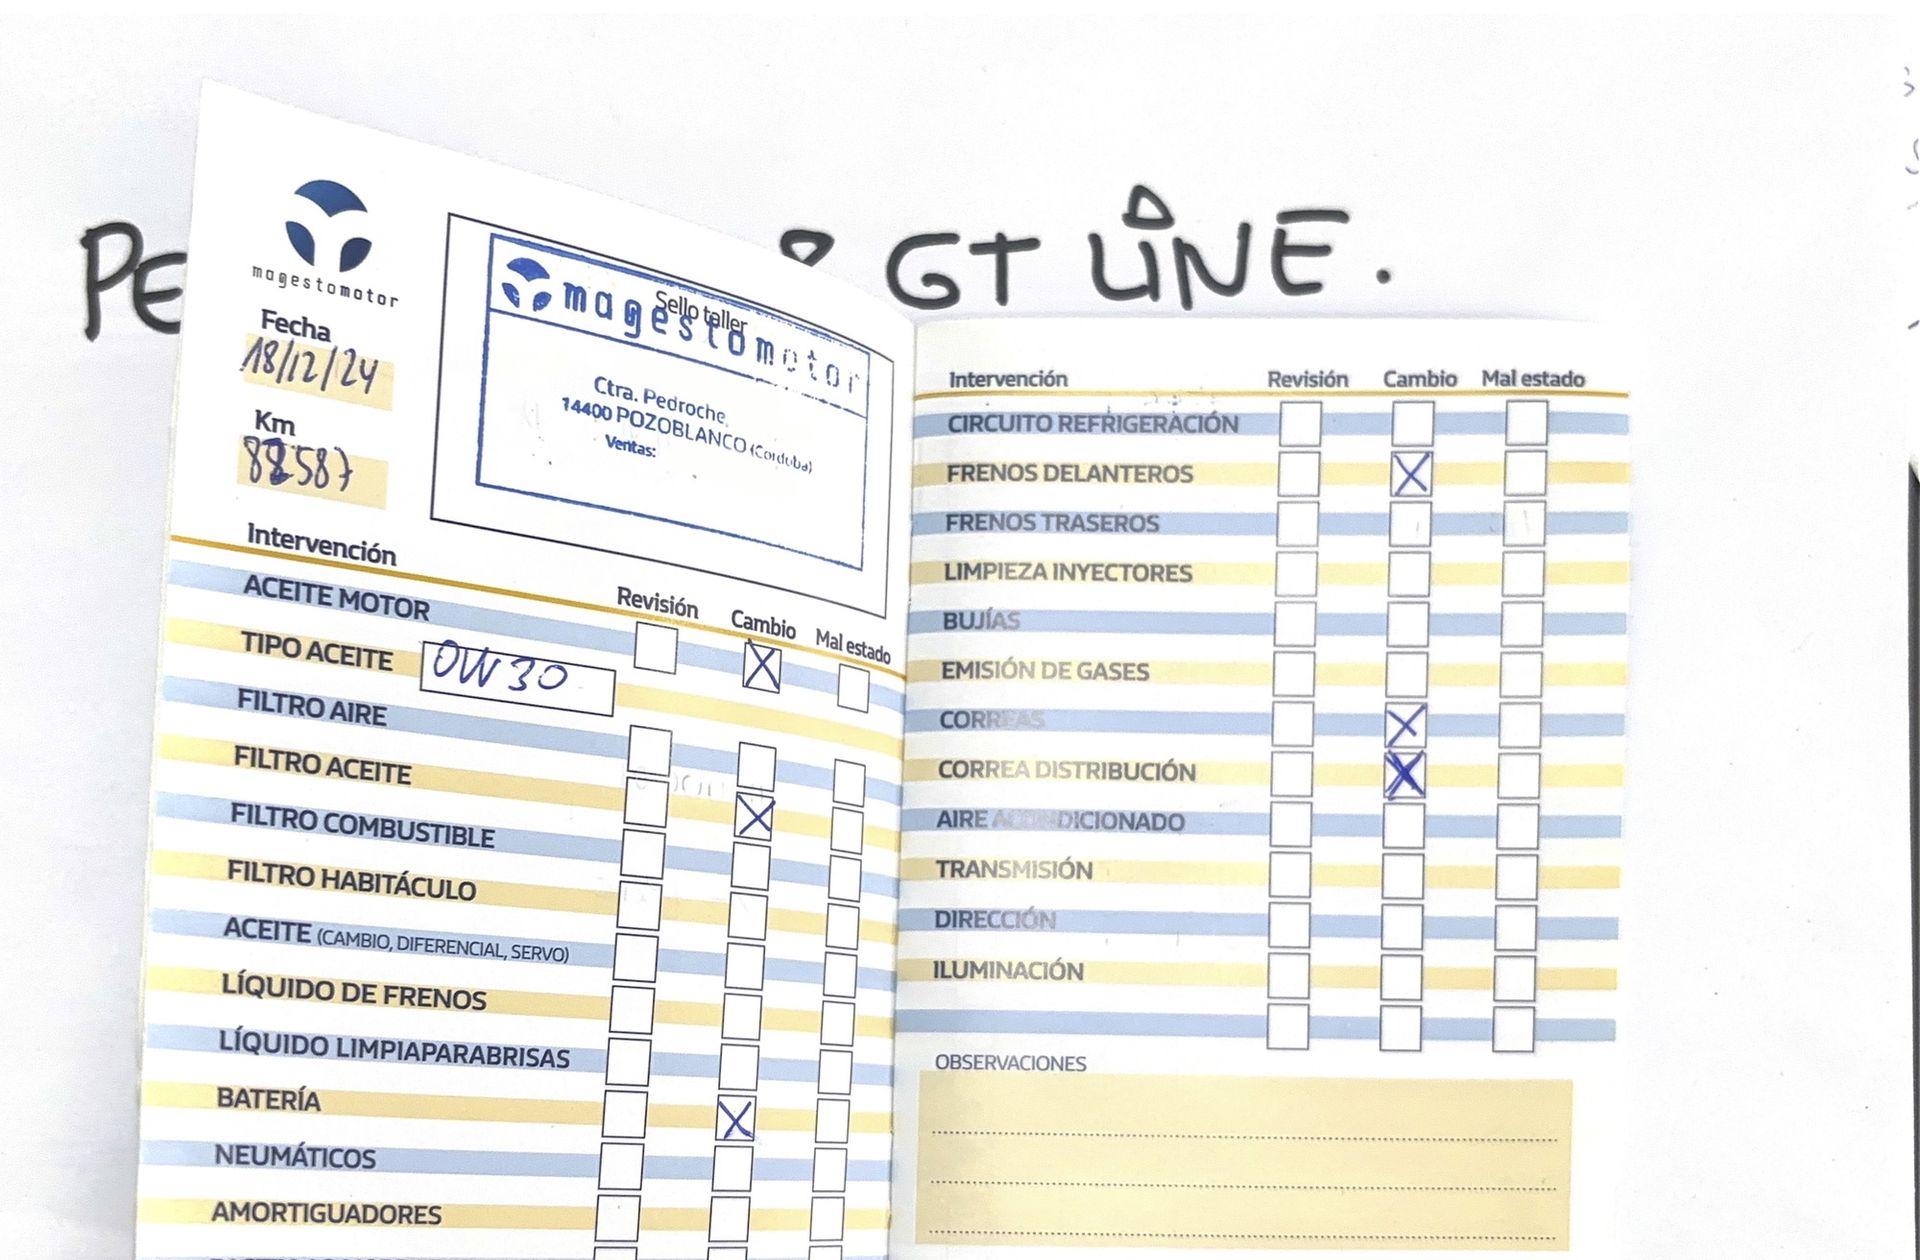 PE 8 GT LINE.
magestomotor
Fecha
18/12/24
Km
88587
Sello taller
magestomotor
Ctra. Pedroche,
14400 POZOBLANCO (Cordoba)
Ventas:
Intervención Revisión Cambio Mal estado
ACEITE MOTOR X
TIPO ACEITE 0W30
FILTRO AIRE
FILTRO ACEITE X
FILTRO COMBUSTIBLE
FILTRO HABITÁCULO
ACEITE (CAMBIO, DIFERENCIAL, SERVO)
LÍQUIDO DE FRENOS
LÍQUIDO LIMPIAPARABRISAS
BATERÍA X
NEUMÁTICOS
AMORTIGUADORES
Intervención Revisión Cambio Mal estado
CIRCUITO REFRIGERACIÓN
FRENOS DELANTEROS X
FRENOS TRASEROS
LIMPIEZA INYECTORES
BUJÍAS
EMISIÓN DE GASES
CORREAS X
CORREA DISTRIBUCIÓN X
AIRE ACONDICIONADO
TRANSMISIÓN
DIRECCIÓN
ILUMINACIÓN
OBSERVACIONES